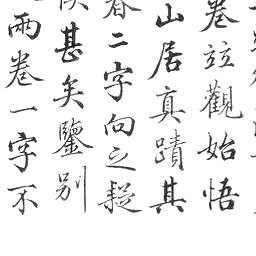 卷竝觀始悟
山居真蹟其
二字向之疑
甚矣鑒別
兩卷一字不